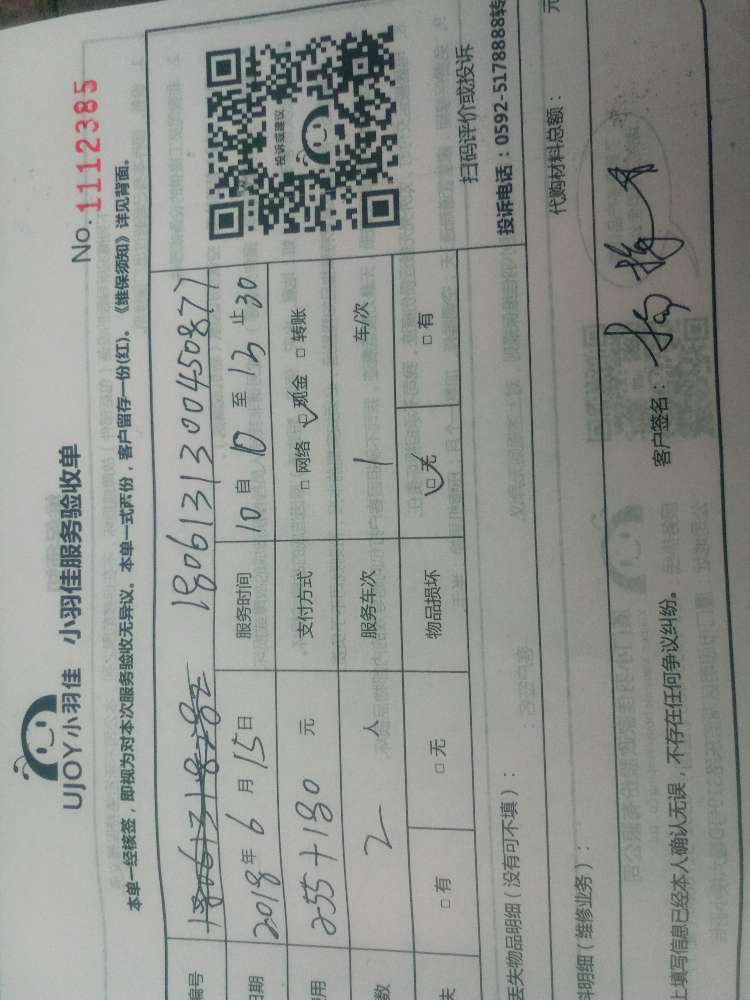 UJOY小羽佳 小羽佳服务验收单
No. 1112385
本单一经核签，即视为对本次服务验收无异议。本单一式两份，客户留存一份(红)。《维保须知》详见背面。
编号 1806131300450877
日期 2018年6月15日 服务时间 10自10至13止30
用 255+180 元 支付方式 □网络 ☑现金 □转账
数 2 人 服务车次 1 车/次
失 □有 □无 物品损坏 ☑无 □有
投诉或建议
扫码评价或投诉
投诉电话：0592-5178888转
丢失物品明细（没有可不填）：
料明细（维修业务）： 代购材料总额： 元
上填写信息已经本人确认无误，不存在任何争议纠纷。 客户签名：